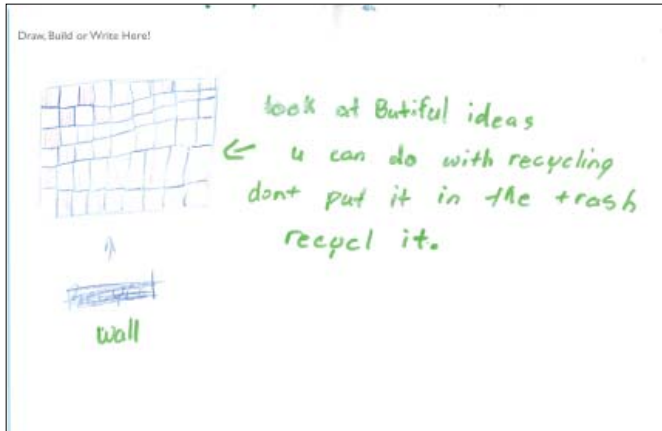 Draw, Build or Write Here!
look at Butiful ideas
u can do with recycling
dont put it in the trash
recycl it.
wall